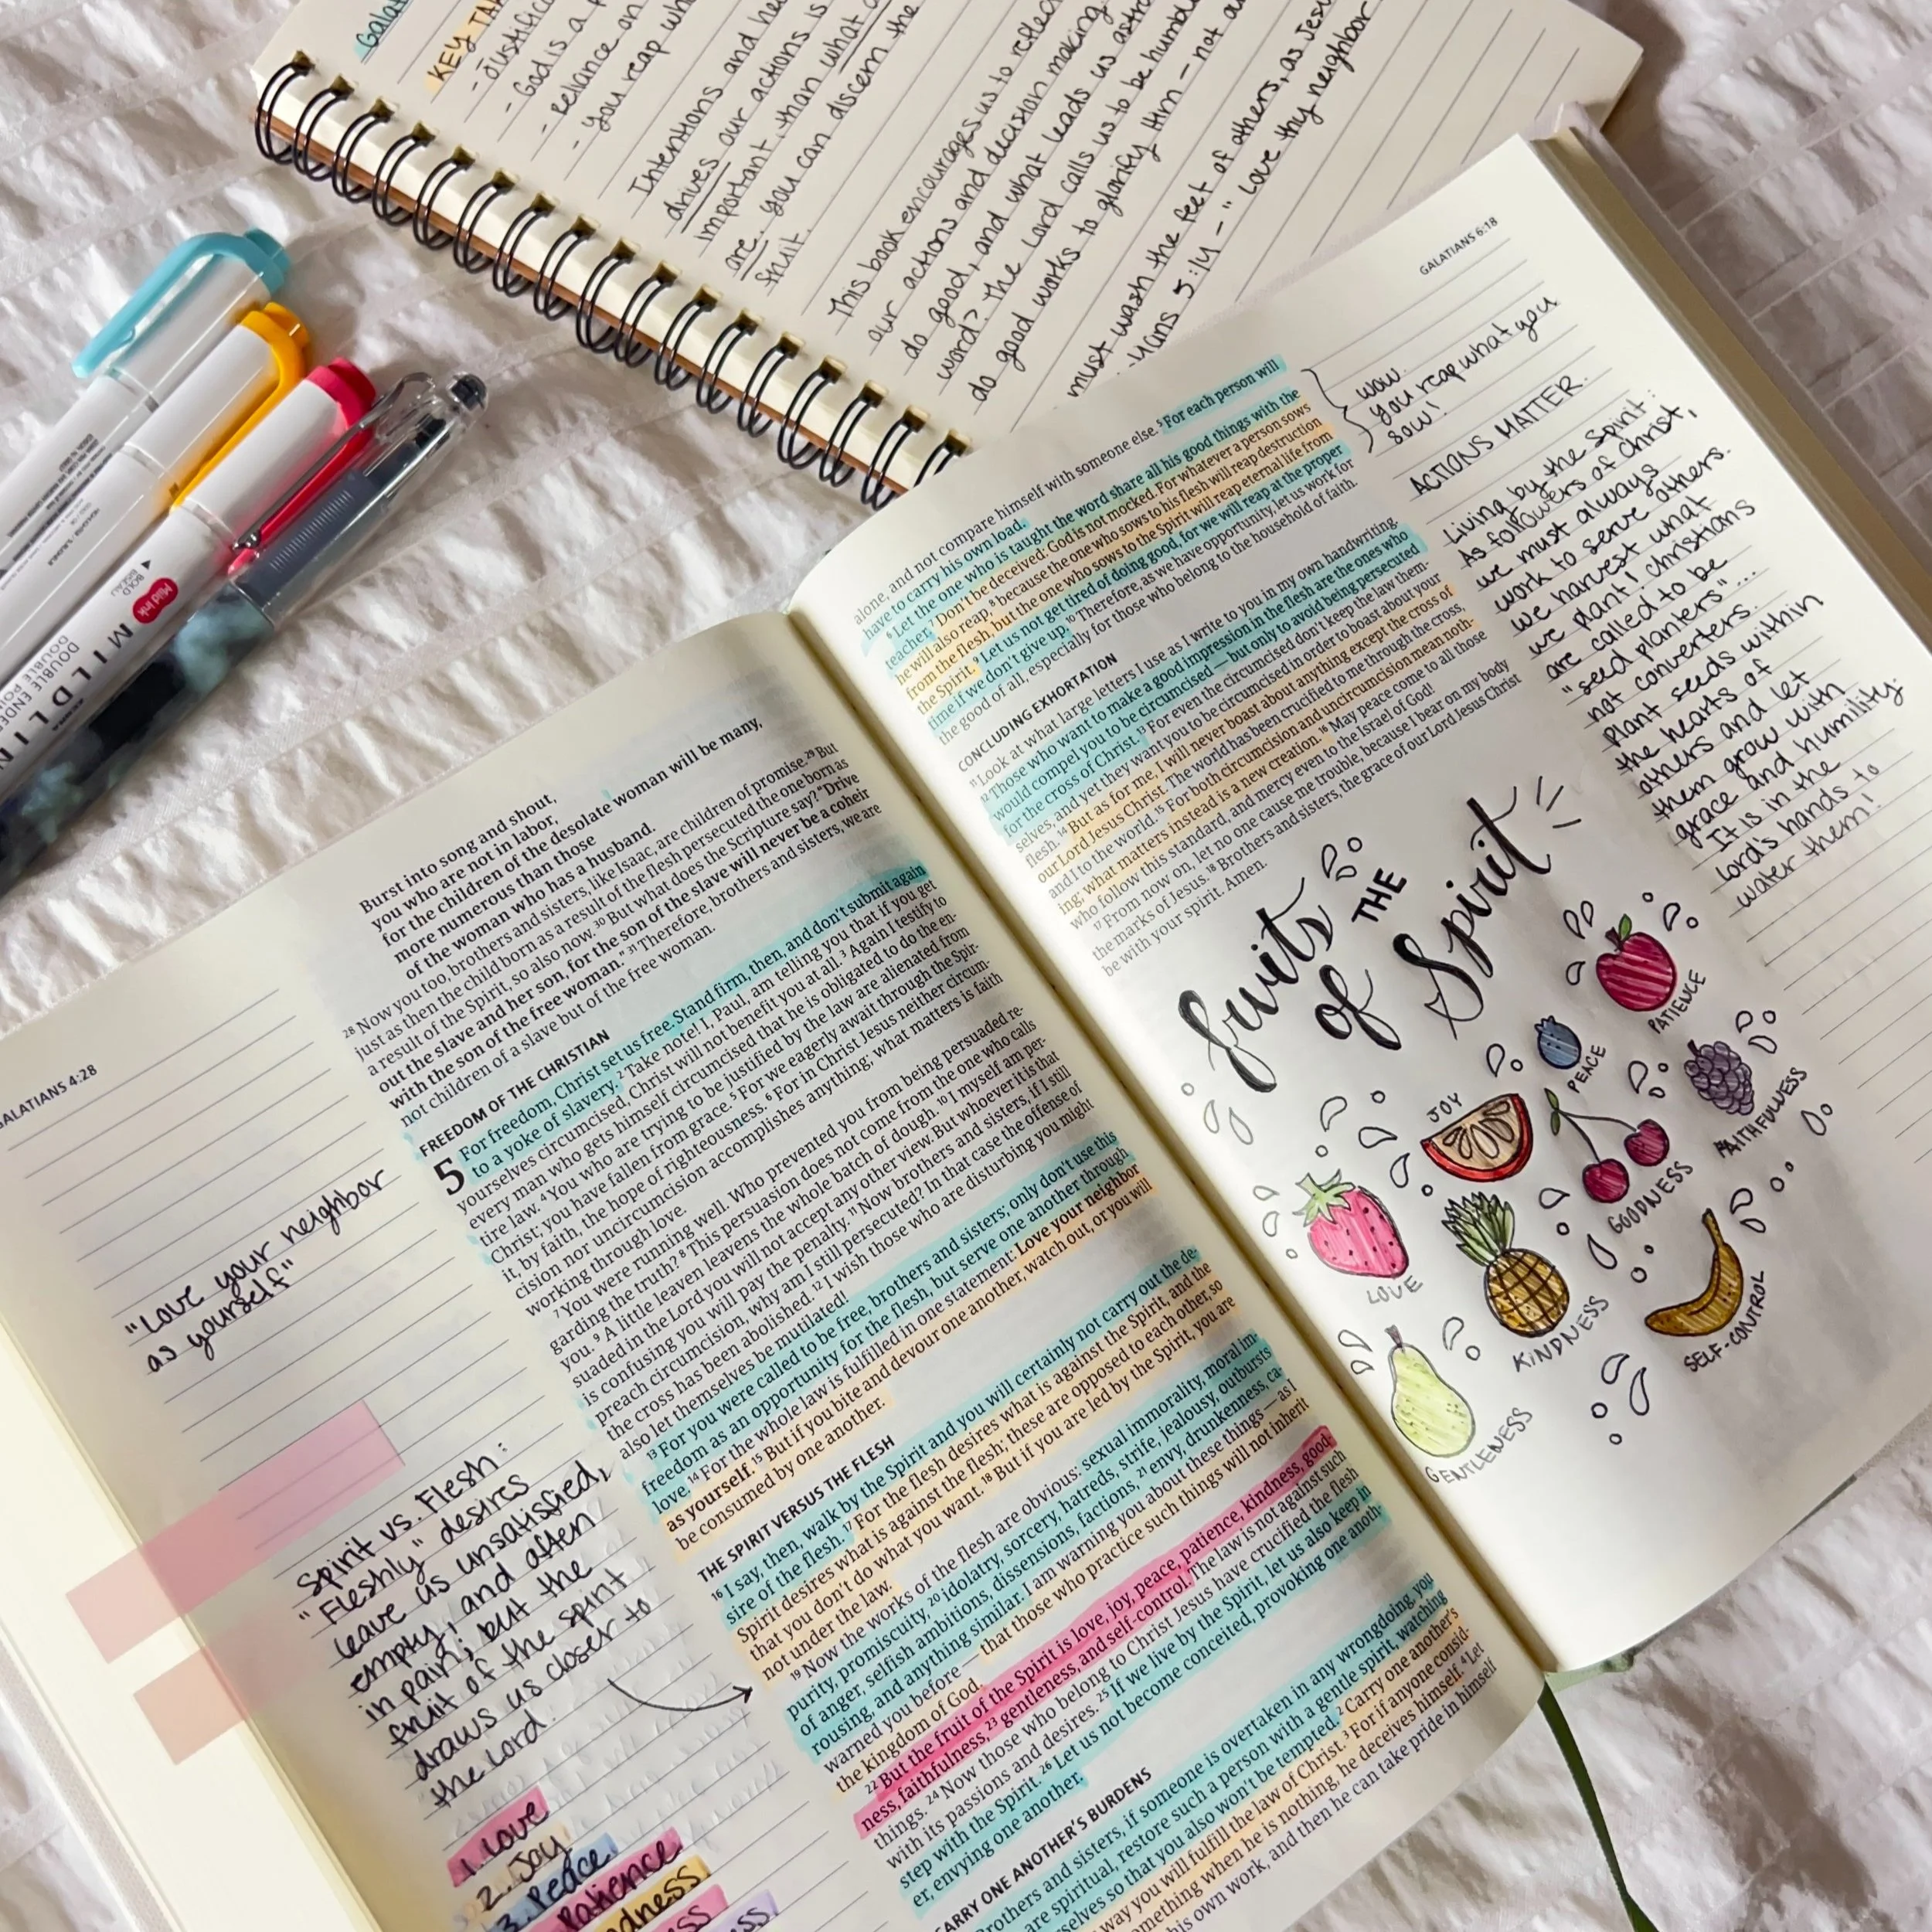 Galat
KEY TA
- Justific
- God is a
- Reliance on
- You reap wh
Intentions and hea
drives our actions is
important than what
are. You can discern the
fruit.
This book encourages us to reflec
our actions and decision making
do good, and what leads us astr
word? The Lord calls us to be humbl
do good works to glorify Him - not ou
must wash the feet of others, as Jesu
5:14 - "Love thy neighbor
Mild ink
MILDLI
DOUBLE ENDE
GALATIANS 4:28
"Love your neighbor
as yourself"
Spirit vs. Flesh:
"Fleshly" desires
leave us unsatisfied,
empty, and often
in pain; but the
fruit of the spirit
draws us closer to
the Lord.
1. Love
2. Joy
3. Peace
Patience
dness
ess
Burst into song and shout,
you who are not in labor,
for the children of the desolate woman will be many,
more numerous than those
of the woman who has a husband.
28 Now you too, brothers and sisters, like Isaac, are children of promise. 29 But
just as then the child born as a result of the flesh persecuted the one born as
a result of the Spirit, so also now. 30 But what does the Scripture say? "Drive
out the slave and her son, for the son of the slave will never be a coheir
with the son of the free woman." 31 Therefore, brothers and sisters, we are
not children of a slave but of the free woman.
FREEDOM OF THE CHRISTIAN
5 For freedom, Christ set us free. Stand firm, then, and don't submit again
to a yoke of slavery. 2 Take note! I, Paul, am telling you that if you get
yourselves circumcised, Christ will not benefit you at all. 3 Again I testify to
every man who gets himself circumcised that he is obligated to do the en-
tire law. 4 You who are trying to be justified by the law are alienated from
Christ; you have fallen from grace. 5 For we eagerly await through the Spir-
it, by faith, the hope of righteousness. 6 For in Christ Jesus neither circum-
cision nor uncircumcision accomplishes anything; what matters is faith
working through love.
7 You were running well. Who prevented you from being persuaded re-
garding the truth? 8 This persuasion does not come from the one who calls
you. 9 A little leaven leavens the whole batch of dough. 10 I myself am per-
suaded in the Lord you will not accept any other view. But whoever it is that
is confusing you will pay the penalty. 11 Now brothers and sisters, if I still
preach circumcision, why am I still persecuted? In that case the offense of
the cross has been abolished. 12 I wish those who are disturbing you might
also let themselves be mutilated!
13 For you were called to be free, brothers and sisters; only don't use this
freedom as an opportunity for the flesh, but serve one another through
love. 14 For the whole law is fulfilled in one statement: Love your neighbor
as yourself. 15 But if you bite and devour one another, watch out, or you will
be consumed by one another.
THE SPIRIT VERSUS THE FLESH
16 I say, then, walk by the Spirit and you will certainly not carry out the de-
sire of the flesh. 17 For the flesh desires what is against the Spirit, and the
Spirit desires what is against the flesh; these are opposed to each other, so
that you don't do what you want. 18 But if you are led by the Spirit, you are
not under the law.
19 Now the works of the flesh are obvious: sexual immorality, moral im-
purity, promiscuity, 20 idolatry, sorcery, hatreds, strife, jealousy, outbursts
of anger, selfish ambitions, dissensions, factions, 21 envy, drunkenness, ca-
rousing, and anything similar. I am warning you about these things — as I
warned you before — that those who practice such things will not inherit
the kingdom of God.
22 But the fruit of the Spirit is love, joy, peace, patience, kindness, good-
ness, faithfulness, 23 gentleness, and self-control. The law is not against such
things. 24 Now those who belong to Christ Jesus have crucified the flesh
with its passions and desires. 25 If we live by the Spirit, let us also keep in
step with the Spirit. 26 Let us not become conceited, provoking one anoth-
er, envying one another.
CARRY ONE ANOTHER'S BURDENS
Brothers and sisters, if someone is overtaken in any wrongdoing, you
are spiritual, restore such a person with a gentle spirit, watching
selves so that you also won't be tempted. 2 Carry one another's
way you will fulfill the law of Christ. 3 For if anyone consid-
omething when he is nothing, he deceives himself. 4 Let
his own work, and then he can take pride in himself
GALATIANS 6:18
alone, and not compare himself with someone else. 5 For each person will
have to carry his own load.
6 Let the one who is taught the word share all his good things with the
teacher. 7 Don't be deceived: God is not mocked. For whatever a person sows
he will also reap, 8 because the one who sows to his flesh will reap destruction
from the flesh, but the one who sows to the Spirit will reap eternal life from
the Spirit. 9 Let us not get tired of doing good, for we will reap at the proper
time if we don't give up. 10 Therefore, as we have opportunity, let us work for
the good of all, especially for those who belong to the household of faith.
CONCLUDING EXHORTATION
11 Look at what large letters I use as I write to you in my own handwriting.
12 Those who want to make a good impression in the flesh are the ones who
would compel you to be circumcised — but only to avoid being persecuted
for the cross of Christ. 13 For even the circumcised don't keep the law them-
selves, and yet they want you to be circumcised in order to boast about your
flesh. 14 But as for me, I will never boast about anything except the cross of
our Lord Jesus Christ. The world has been crucified to me through the cross,
and I to the world. 15 For both circumcision and uncircumcision mean noth-
ing; what matters instead is a new creation. 16 May peace come to all those
who follow this standard, and mercy even to the Israel of God!
17 From now on, let no one cause me trouble, because I bear on my body
the marks of Jesus. 18 Brothers and sisters, the grace of our Lord Jesus Christ
be with your spirit. Amen.
WOW.
you reap what you
sow!
ACTIONS MATTER.
Living by the Spirit:
As followers of Christ,
we must always
work to serve others.
we harvest what
we plant! Christians
are called to be
"seed planters"...
not converters.
Plant seeds within
the hearts of
others and let
them grow with
grace and humility.
It is in the
Lord's hands to
water them!
fruits
THE
of Spirit
PATIENCE
PEACE
JOY
FAITHFULNESS
GOODNESS
LOVE
KINDNESS
SELF-CONTROL
GENTLENESS